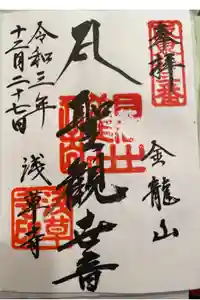 奉拝
金龍山
聖観世音
浅草寺
令和三年
十二月二十七日